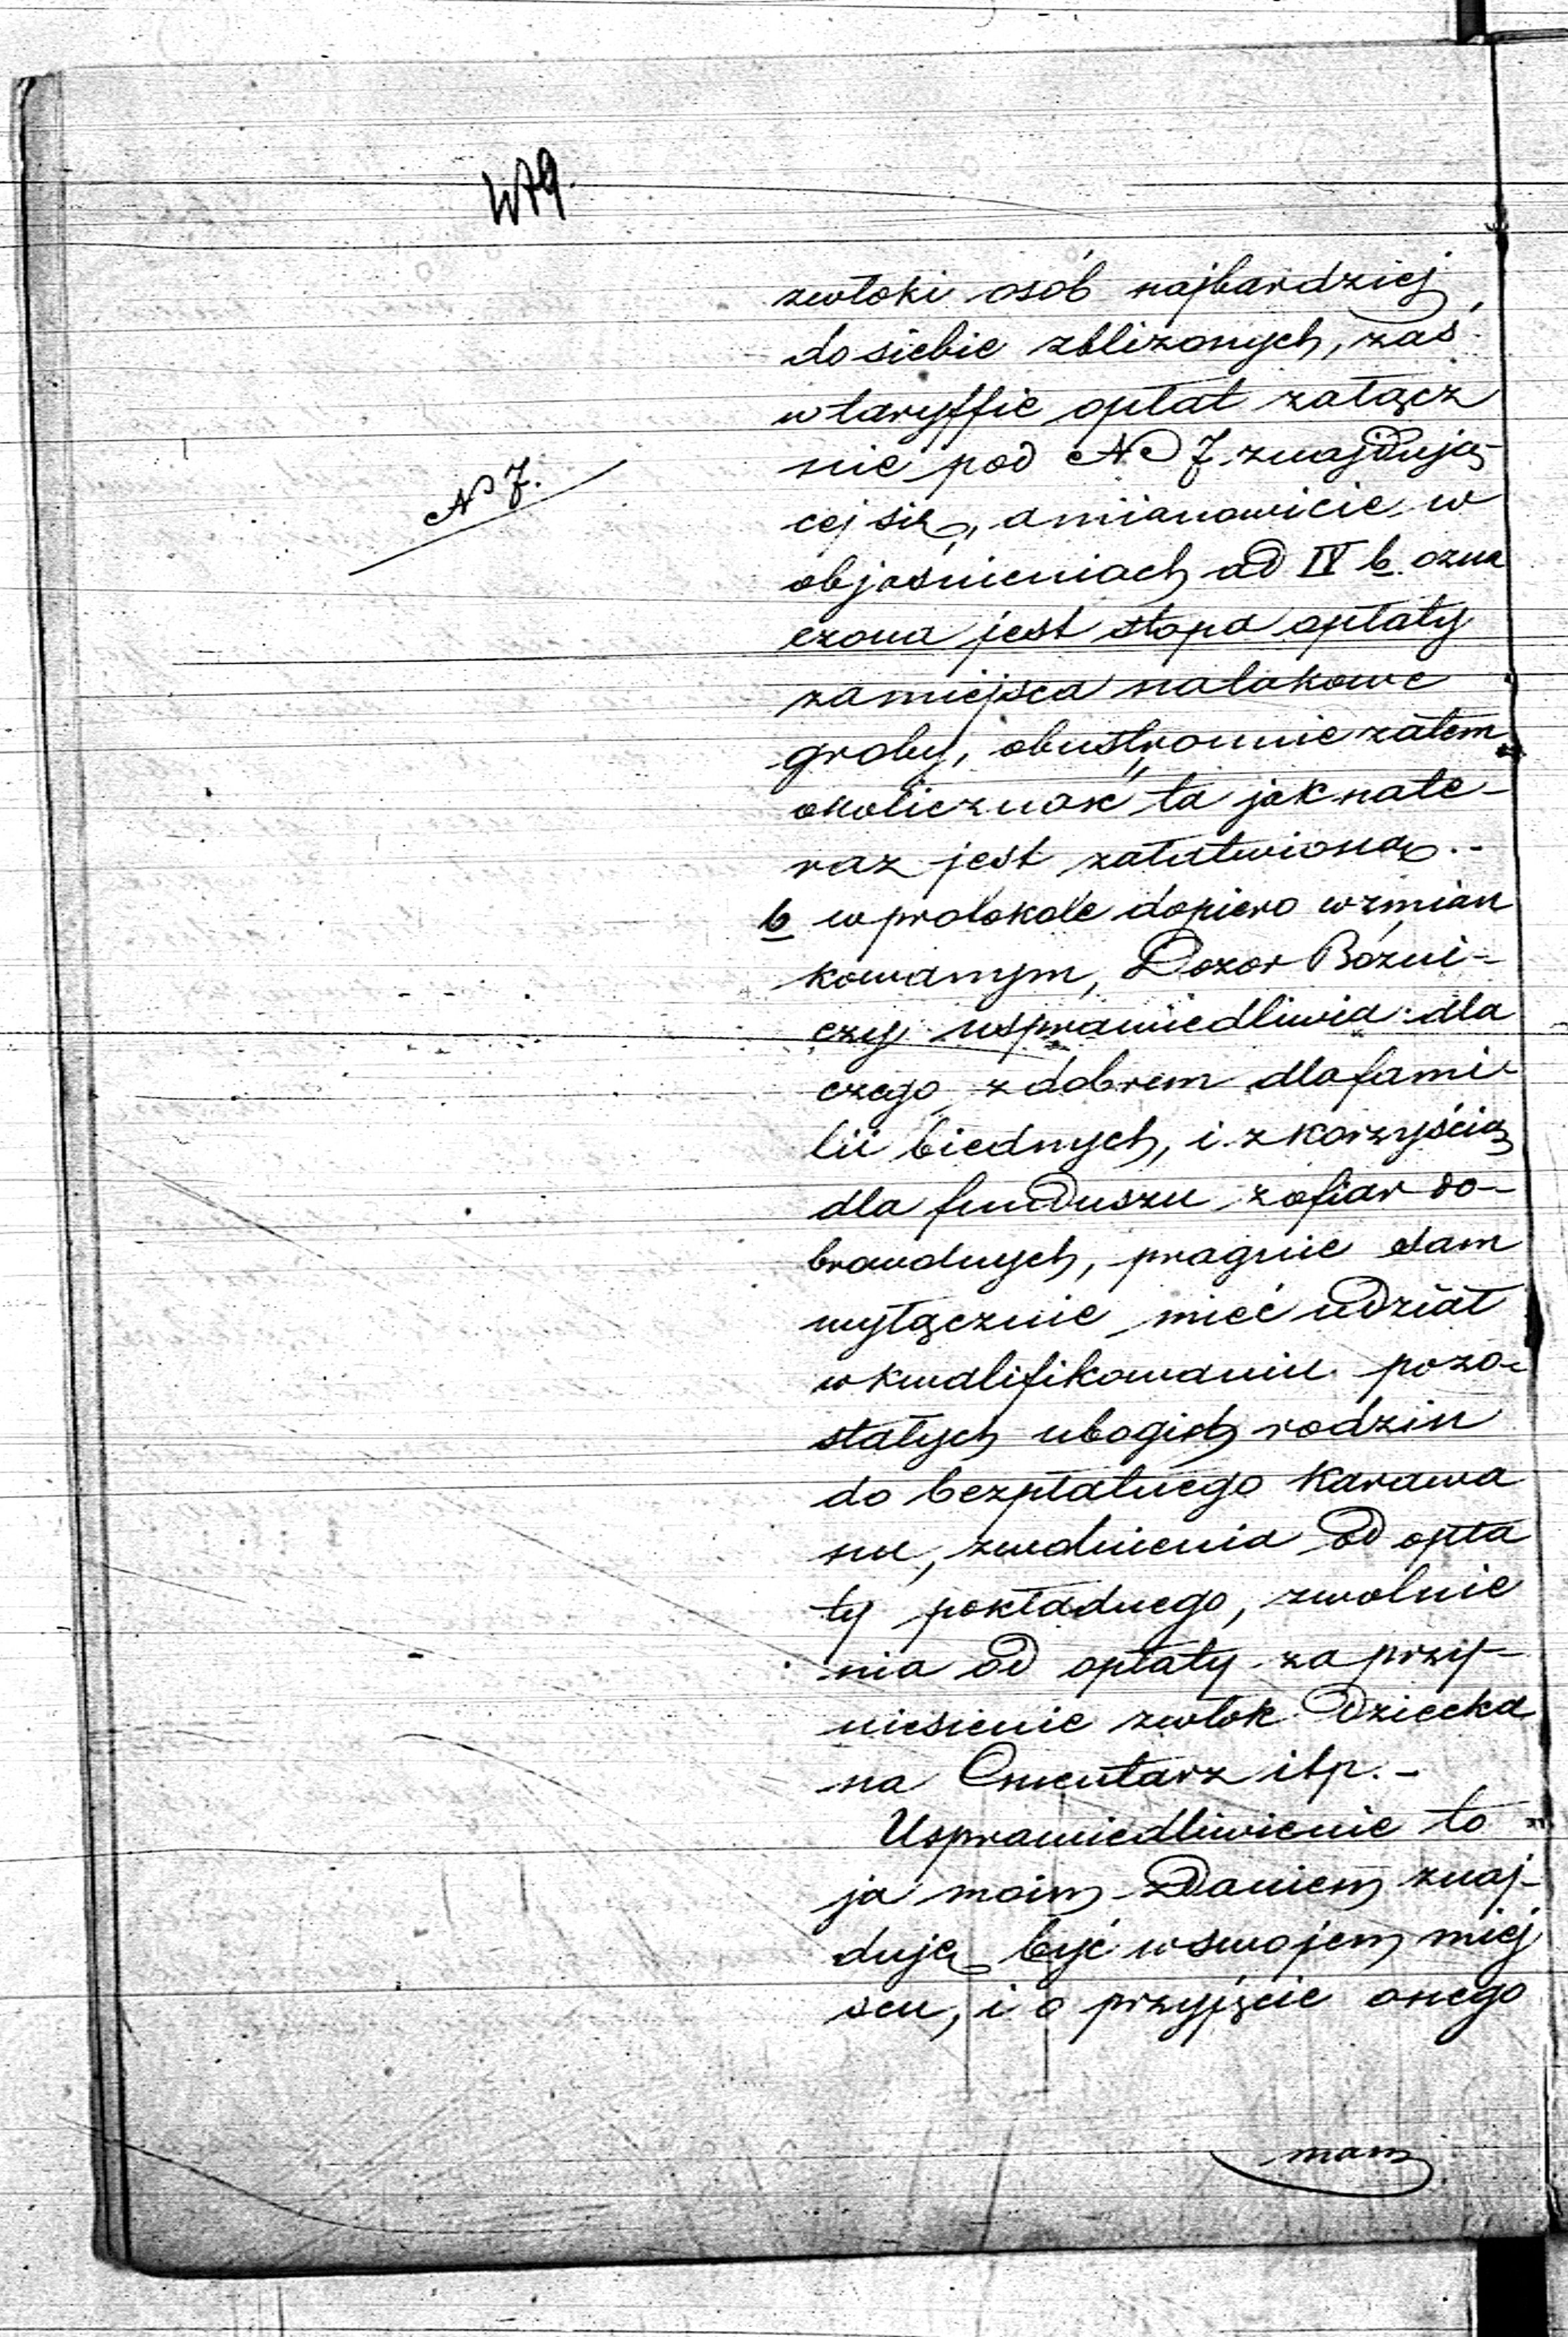 zwłoki osób najbardziej
do siebie zbliżonych, zaś
w taryffie opłat załącz
nie pod No 7. znajdują-
cej się, a mianowicie w
objaśnieniach ad IV b. ozna
czona jest stopa opłaty
za miejsca na takowe
groby, obustronnie zatem
okoliczność ta jak na te-
raz jest załatwioną.-
b w protokole dopiero wzmian
kowanym, Dozor Bózni-
czy usprawiedliwia dla
czego z dobrem dla fami-
lii biednych, i z korzyścią
dla funduszu z ofiar do-
browolnych, pragnie sam
wyłącznie mieć udział
w kwalifikowaniu pozo-
stałych ubogich rodzin
do bezpłatnego Karawa
nu, zwolnienia od opła
ty pokładnego, zwolnie
nia od opłaty za przy-
niesienie zwłok Dziecka
na Cmentarz itp.-
Usprawiedliwienie to
ja moim zdaniem znaj-
duję być w swojem miej
scu, i o przyjęcie onego
mam
No 7.